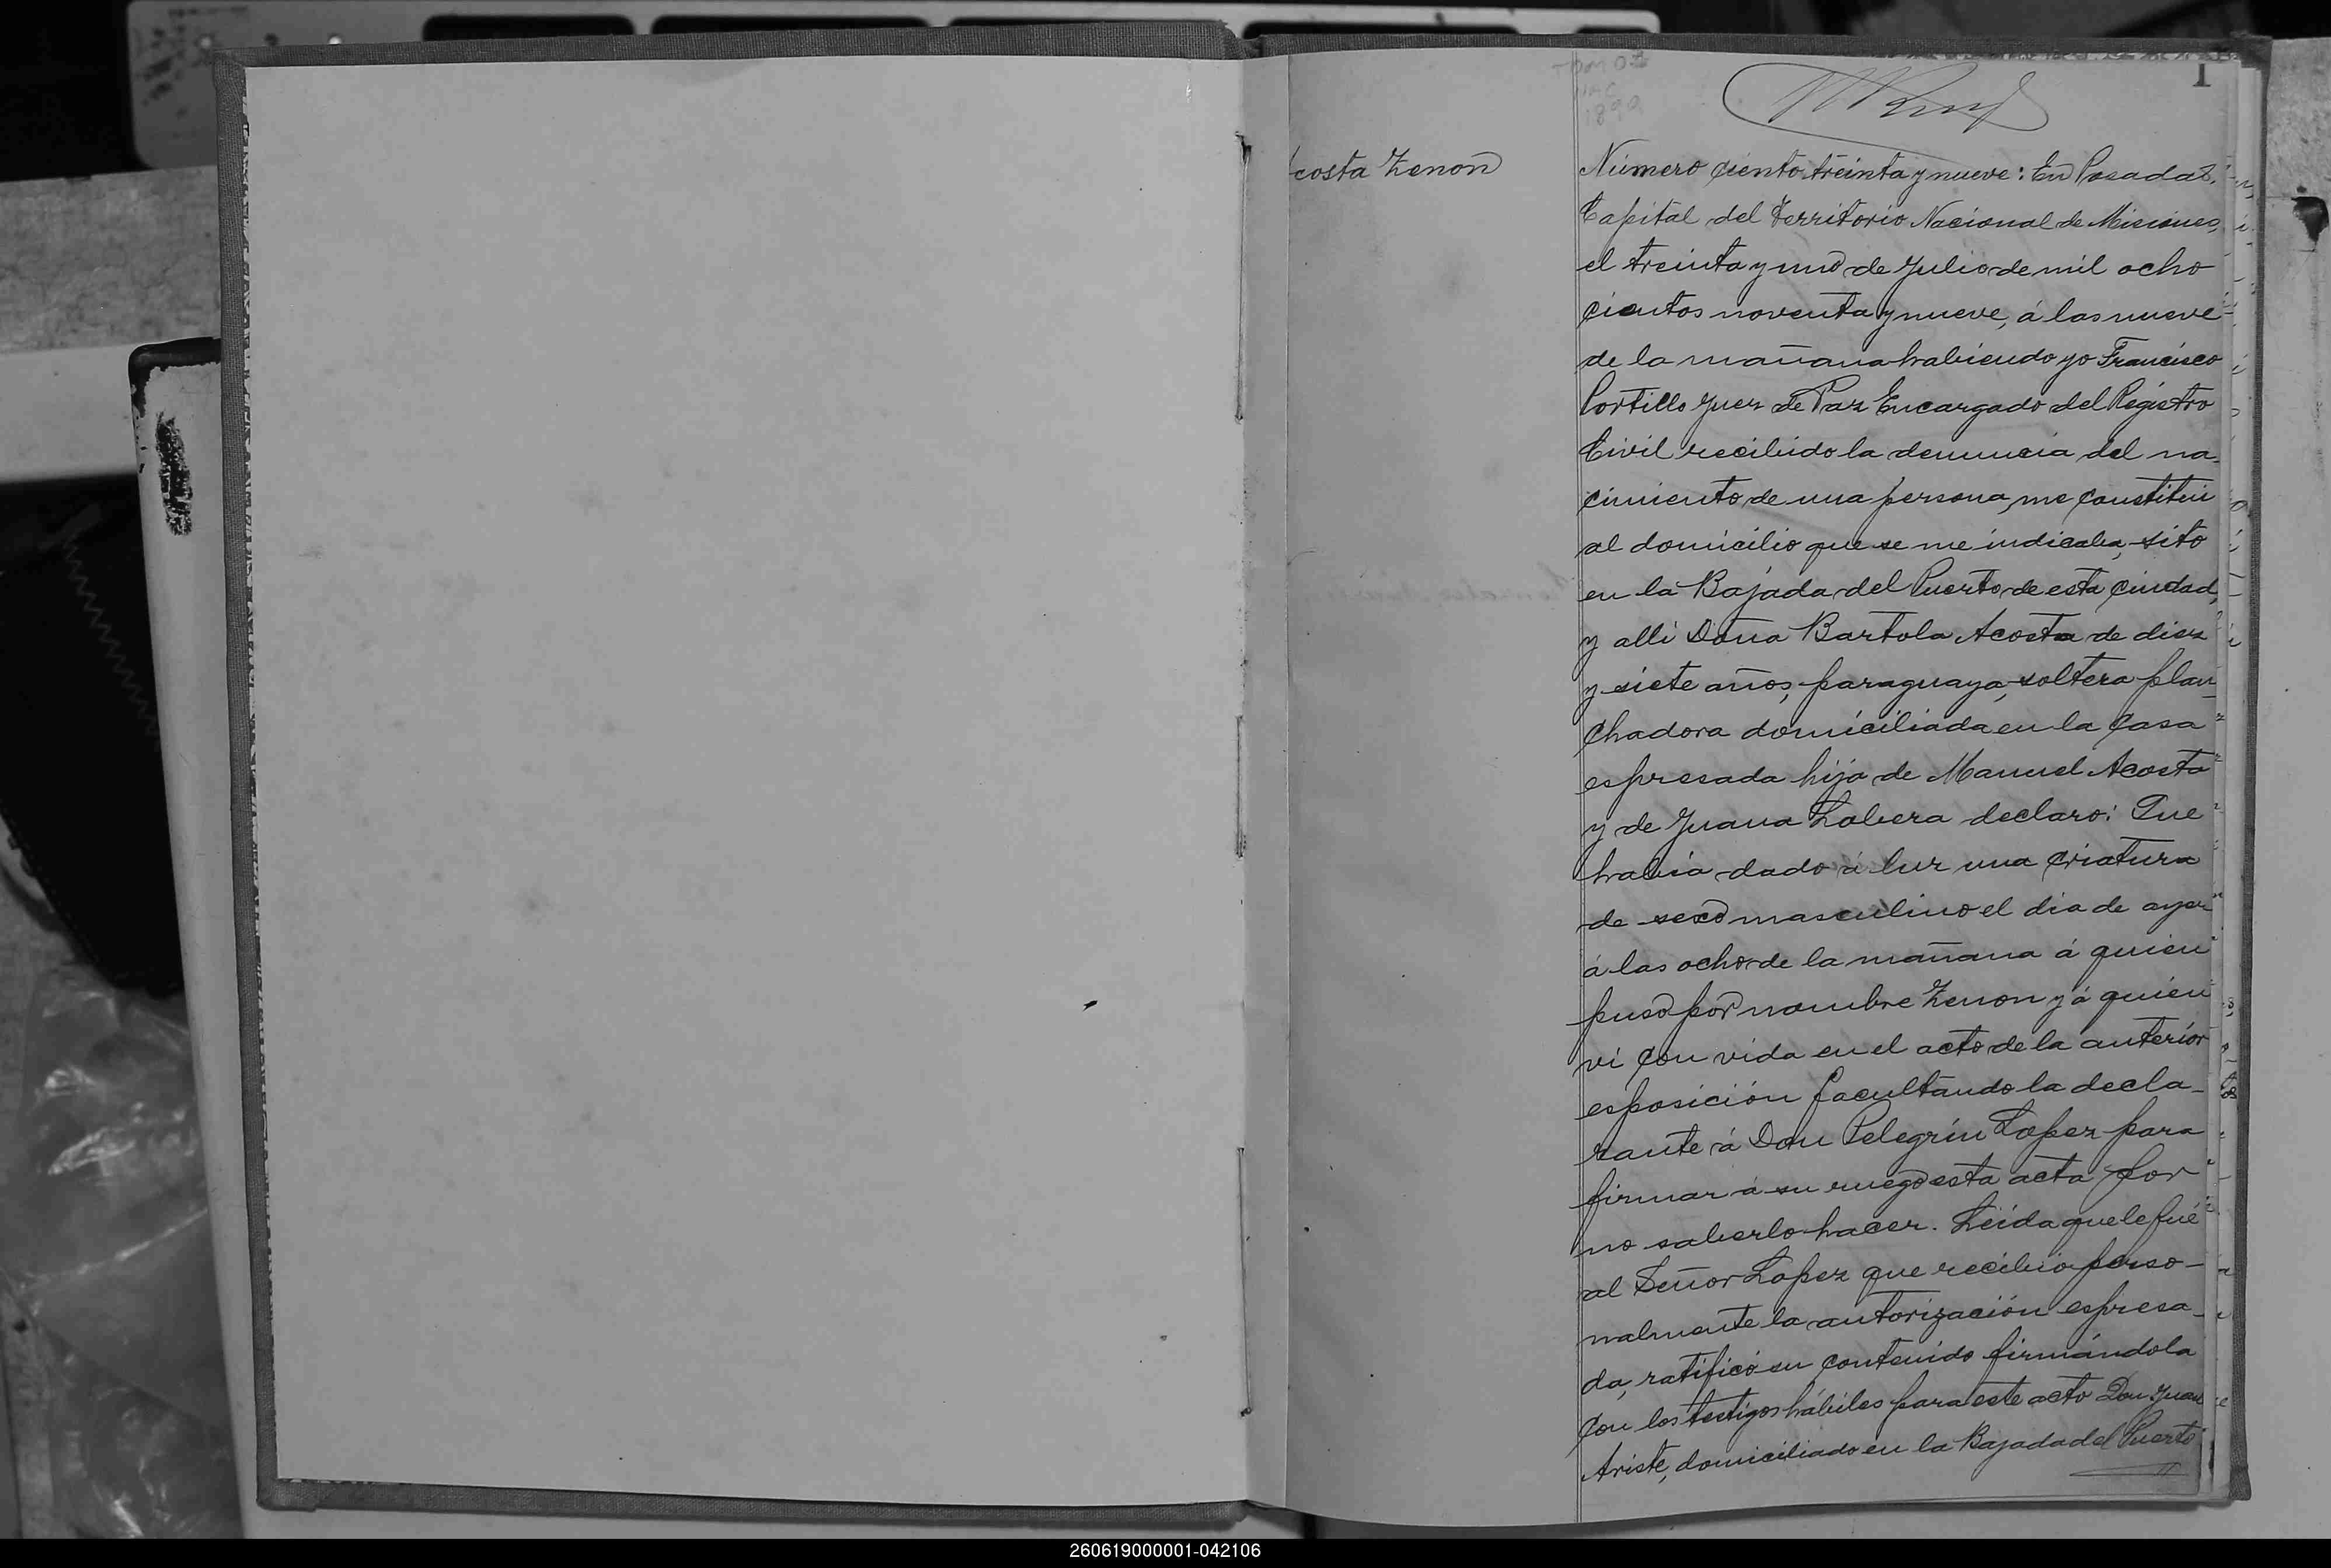 Tomo 2
1899
1
costa Zenon
Número ciento treinta y nueve: En Posadas,
Capital del Territorio Nacional de Misiones,
el treinta y uno de Julio de mil ocho
cientos noventa y nueve, á las nueve
de la mañana habiendo yo Francisco
Portillo Juez de Paz Encargado del Registro
Civil recibido la denuncia del na-
cimiento de una persona, me constitui
al domicilio que se me indicaba, sito
en la Bajada del Puerto de esta ciudad,
y alli Doña Bartola Acosta de diez
y siete años, paraguaya, soltera plan-
chadora domiciliada en la casa
espresada hija de Manuel Acosta
y de Juana Labera declaro: Que
habia dado á luz una criatura
de sexo masculino el dia de ayer
á las ocho de la mañana á quien
puso por nombre Zenon y á quien
vi con vida en el acto de la anterior
esposición facultando la decla-
rante á Don Pelegrin Lopez para
firmar á su ruego esta acta por
no saberlo hacer. Leida que le fué
al Señor Lopez que recibió perso-
nalmente la autorización espresa-
da, ratificó su contenido firmándola
con los testigos hábiles para este acto Don Juan
Ariste, domiciliado en la Bajada del Puerto
260619000001-042106